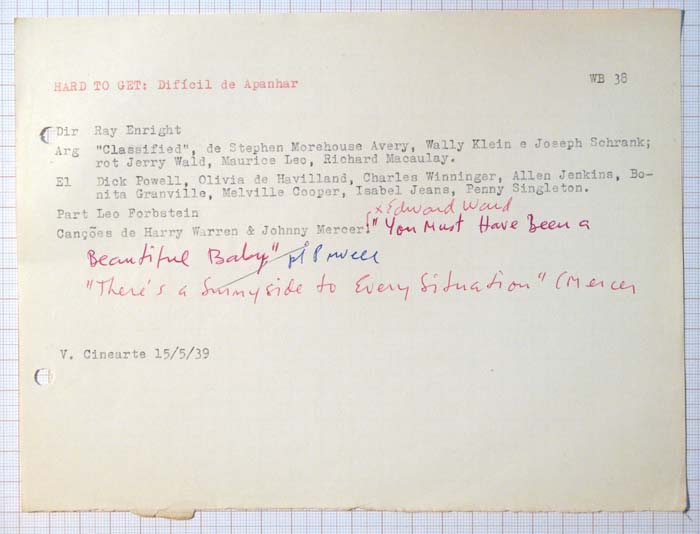 HARD TO GET: Difícil de Apanhar WB 38
Dir Ray Enright
Arg "Classified", de Stephen Morehouse Avery, Wally Klein e Joseph Schrank;
rot Jerry Wald, Maurice Leo, Richard Macaulay.
El Dick Powell, Olivia de Havilland, Charles Winninger, Allen Jenkins, Bo-
nita Granville, Melville Cooper, Isabel Jeans, Penny Singleton.
Part Leo Forbstein x Edward Ward
Canções de Harry Warren & Johnny Mercer: "You Must Have Been a
Beautiful Baby" p/ Powell
"There's a Sunnyside to Every Situation" (Mercer
V. Cinearte 15/5/39